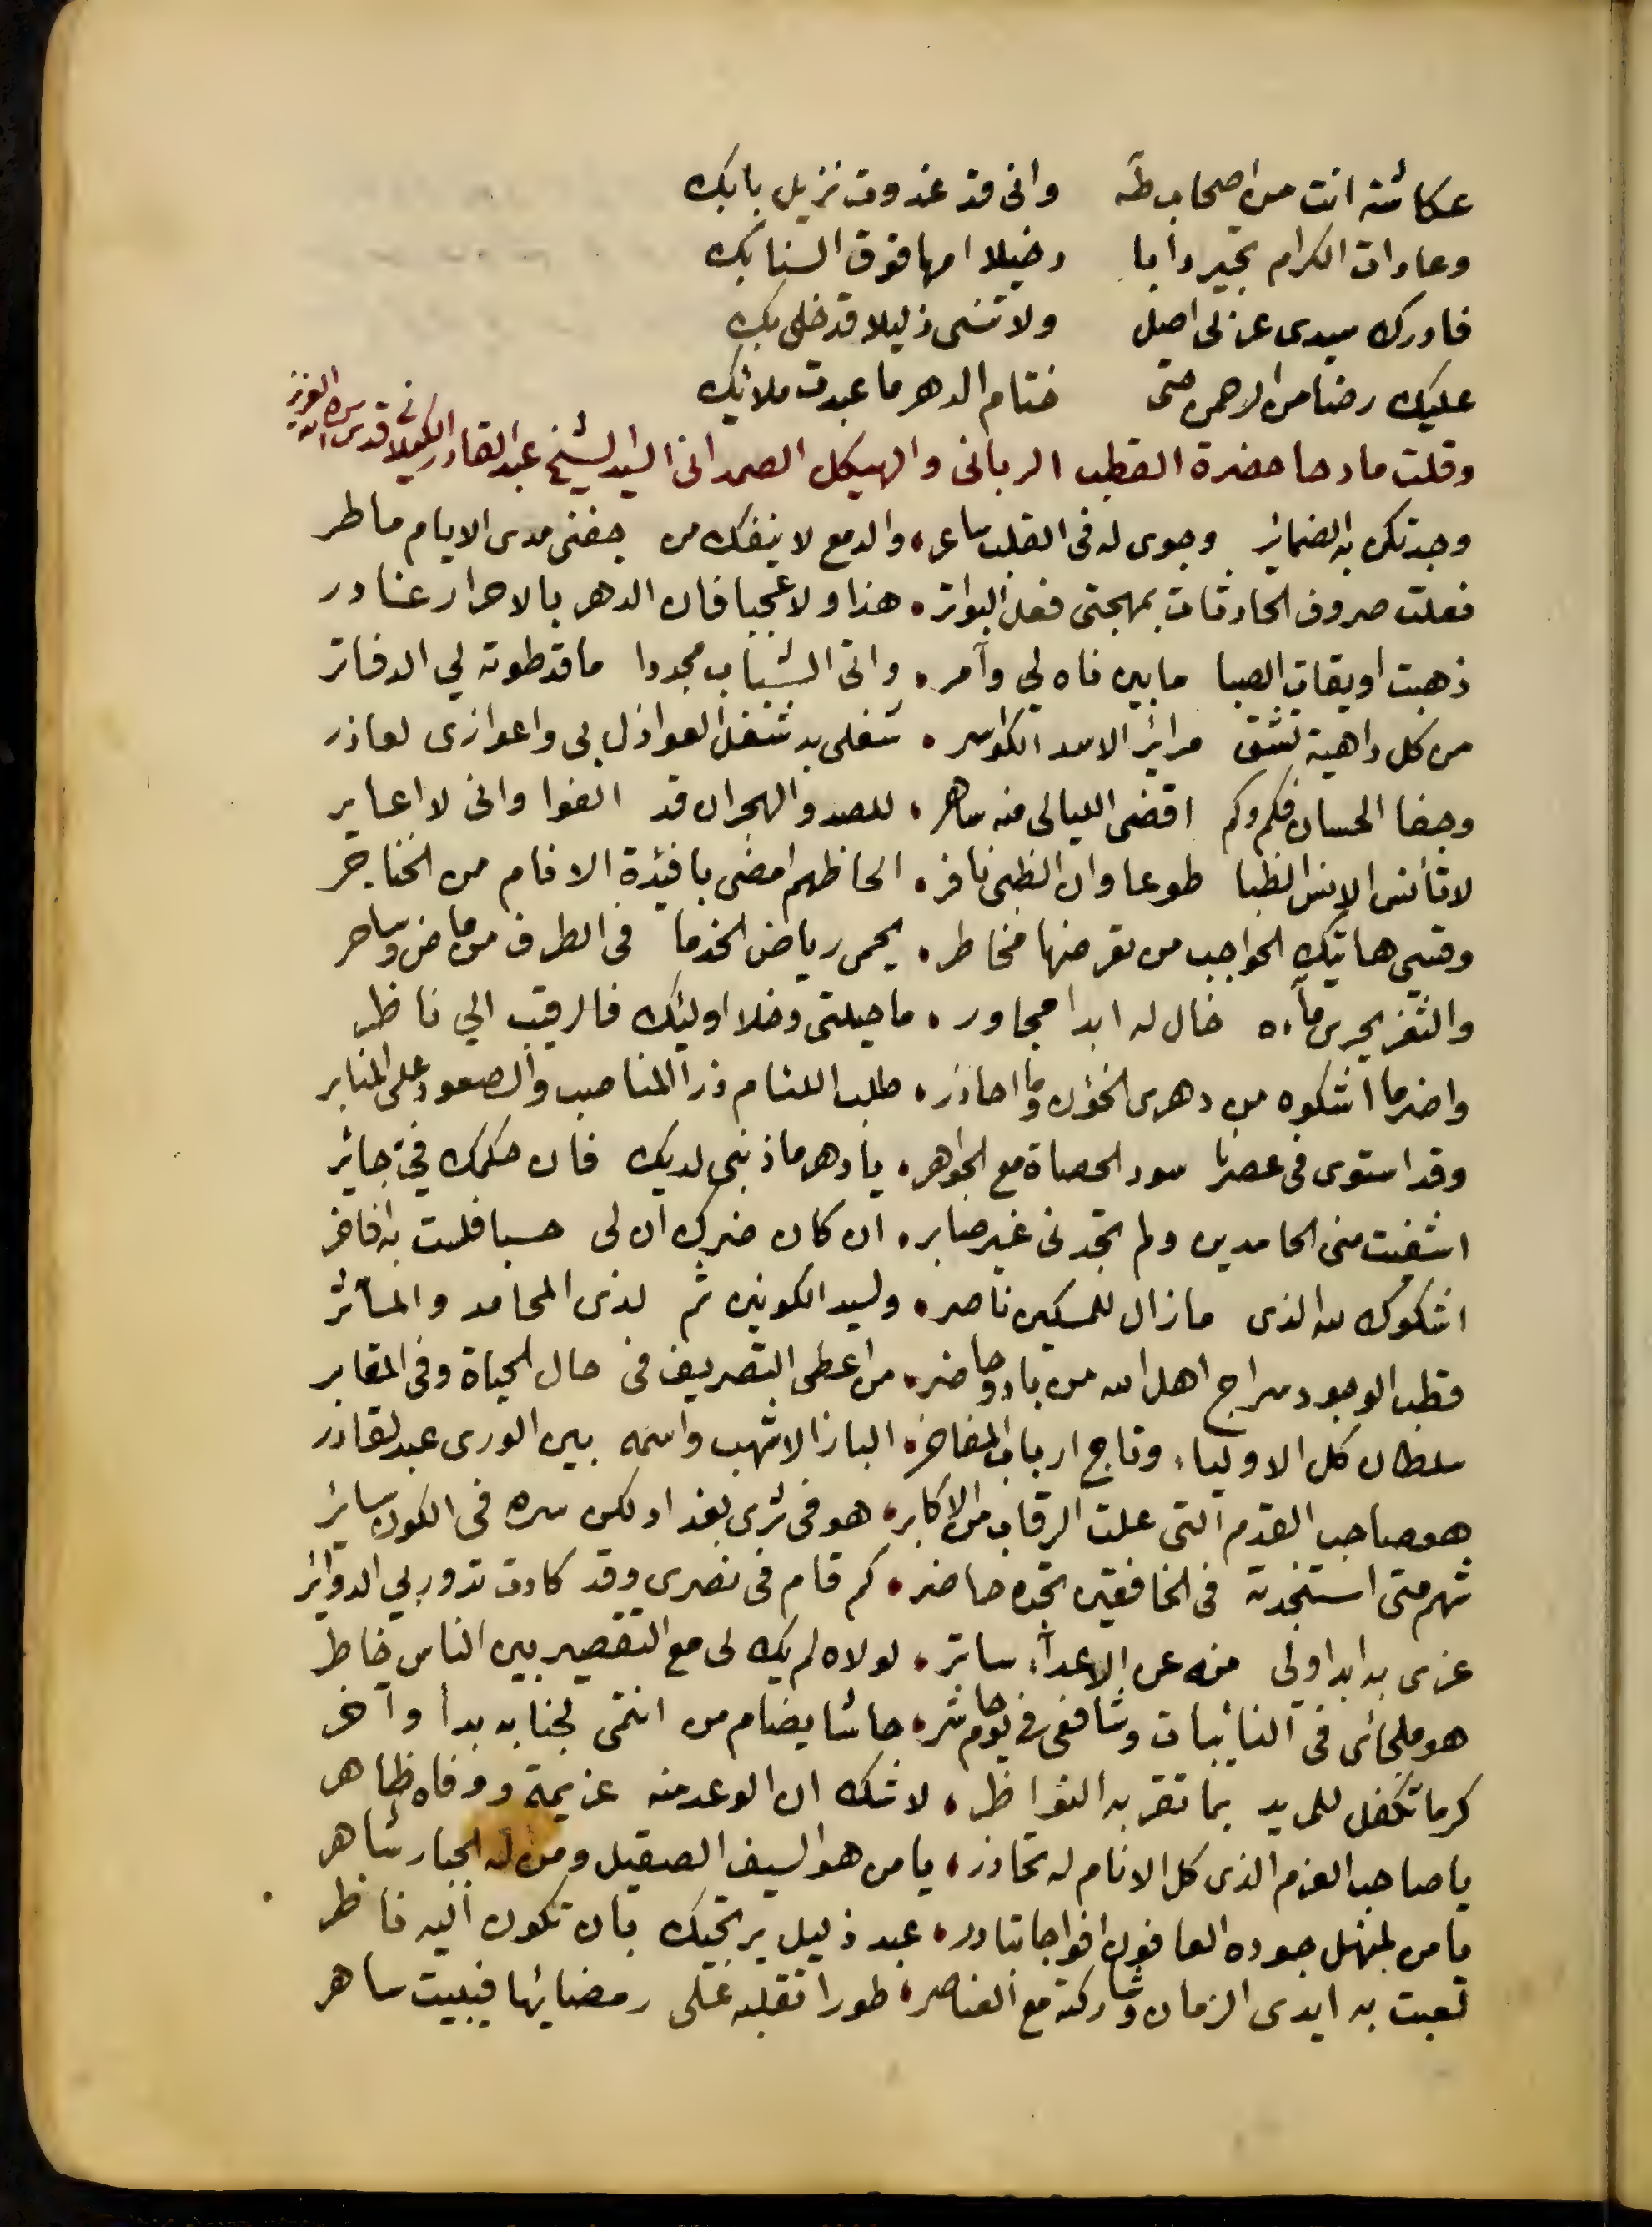 عكاشة انت من اصحاب طه وانى قد غدوت نزيل بابك
وعادات الكرام تجير دأبا دخيلا امها فوق السنابك
فادرك سيدى عز لى اصيل ولا تنسى ذليلا قد خلى بك
عليك رضا من الرحمن حتى ختام الدهر ما عبدت ملائك
وقلت مادحا حضرة القطب الربانى والهيكل الصمدانى السيد الشيخ عبد القادر الكيلانى قدس الله سره العزيز
وجد تكن به الضمائر وجوى له فى القلب ساعر والدمع لا ينفك من جفنى مدى الايام ماطر
فعلت صروف الحادثات بمهجتى فعل البواتر هذا ولا عجبا فان الدهر بالاحرار غادر
ذهبت اويقات الصبا ما بين ناه لي وآمر واتى الشباب مجددا ما قد طوته لي الدفاتر
من كل داهية تشق مرائر الاسد الكواسر شغلى به شغل العواذل بى واعوازى لعاذر
وجفا الحسان فكم وكم اقضى الليالى منه ساهر للصد والهجران قد الفوا وانى لا اعاير
لا تأنس الانس الظبا طوعا وان الظبى نافر الحاظهم امضى بافئدة الانام من الخناجر
وقسي هاتيك الحواجب من تعرضها مخاطر يحمى رياض الخد ما فى الطرف من ماض وساحر
والثغر يجرى ماءه خال له ابدا مجاور ما حيلتى وخلا اوليك فالرقيب الي ناظر
واضر ما اشكوه من دهرى الخؤن وما احاذر طلب اللئام ذرا المناصب والصعود على المنابر
وقد استوى فى عصرنا سود الحصاة مع الجواهر يا دهر ما ذنبى لديك فان حكمك فيّ جائر
اشفيت منى الحاسدين ولم تجدنى غير صابر ان كان ضرك ان لى حسبا فلست به افاخر
اشكوك لله الذى ما زال للمسكين ناصر ولسيد الكونين ثم لذى المحامد والمآثر
قطب الوجود سراج اهل الله من باد وحاضر من اعطى التصريف فى حال الحياة وفى المقابر
سلطان كل الاولياء وتاج ارباب المفاخر الباز الاشهب واسمه بين الورى عبد القادر
هو صاحب القدم التى علت الرقاب من الاكابر هو فى ثرى بغداد لكن سره فى الكون سائر
شهم متى استنجدته فى الخافقين تجده حاضر كم قام فى نصرى وقد كادت تدور بي الدوائر
عزى به ابدا ولى منه عن الاعدآء ساتر لولاه لم يك لى مع التقصير بين الناس خاطر
هو ملجائى فى النائبات وشافعى فى يوم حاشر حاشا يضام من انتمى لجنابه بدأ وآخر
كرما تكفل للمريد بما تقر به النواظر لا شك ان الوعد منه عزيمة ووفاه ظاهر
يا صاحب العزم الذى كل الانام له تحاذر يا من هو السيف الصقيل ومن له الجبار شاهر
يا من لمنهل جوده العافون افواجا تبادر عبد ذليل يرتجيك بان تكون اليه ناظر
لعبت به ايدى الزمان وشاركته مع العناصر طورا تقلبه على رمضائها فيبيت ساهر